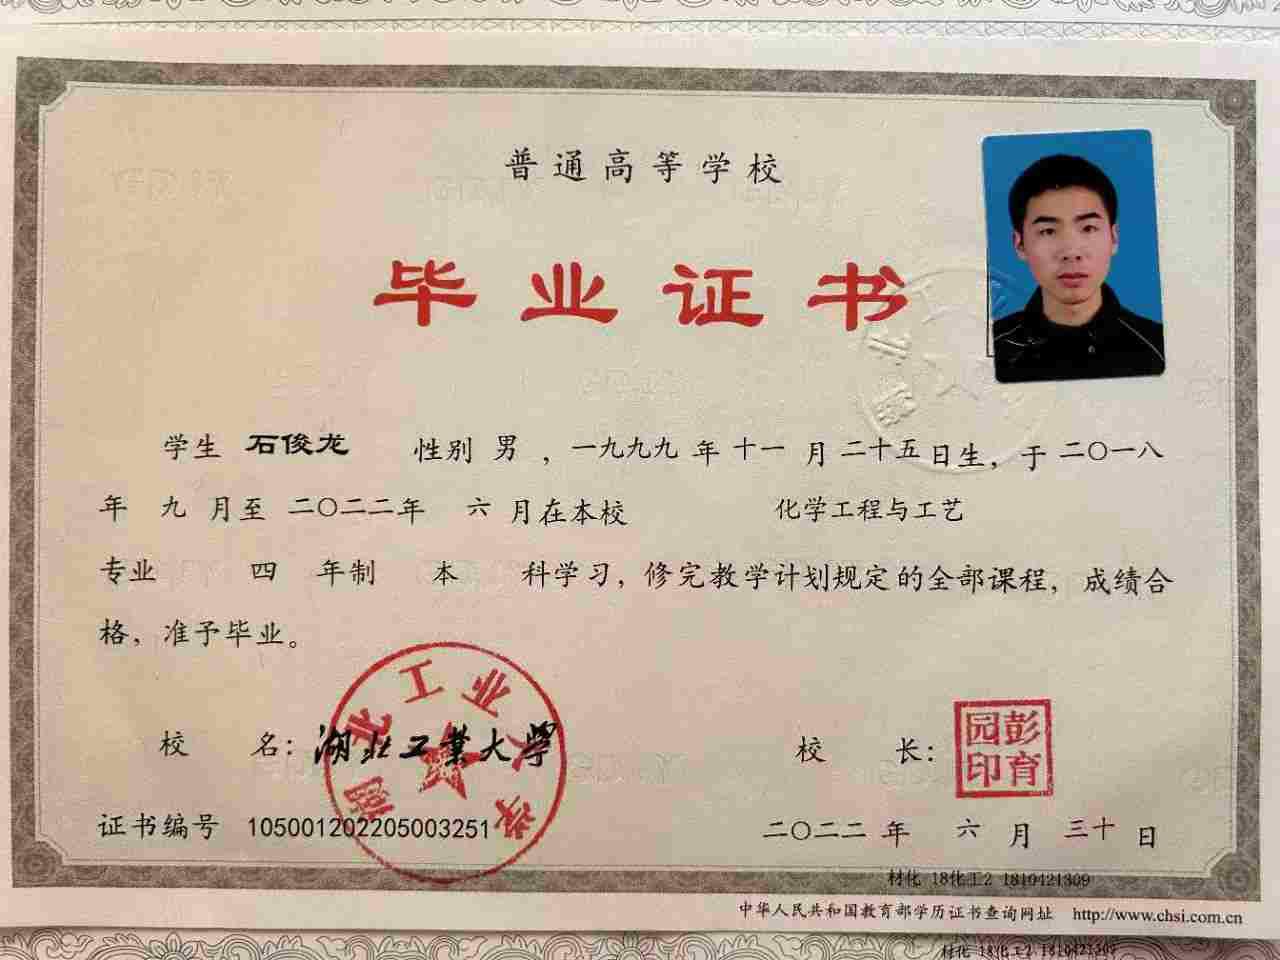 普通高等学校
毕业证书
学生 石俊龙 性别 男 ，一九九九 年 十一 月 二十五日生，于 二〇一八
年 九 月至 二〇二二年 六 月在本校 化学工程与工艺
专业 四 年制 本 科学习，修完教学计划规定的全部课程，成绩合
格，准予毕业。
校 名：湖北工业大学
湖北工业大学
校 长：
彭育园印
证书编号 105001202205003251
二〇二二 年 六 月 三十 日
材化 18化工2 1810421309
中华人民共和国教育部学历证书查询网址 http://www.chsi.com.cn
材化 18化工2 1810421309